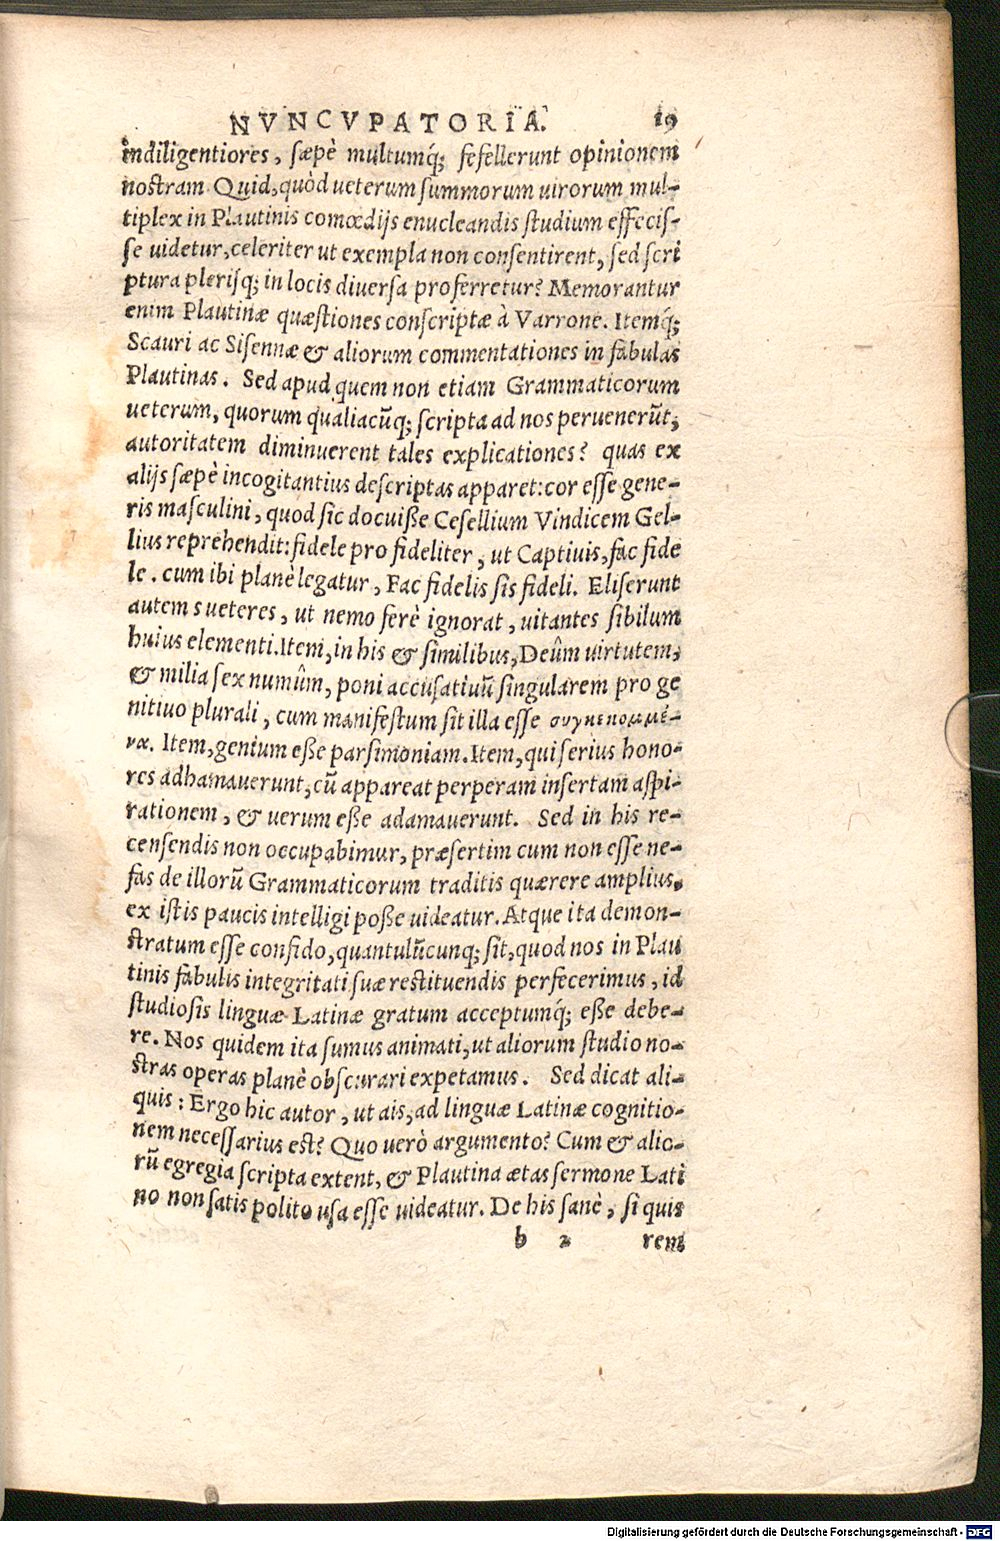 NVNCVPATORIA. 19
indiligentiores, sæpè multumq́; fefellerunt opinionem
nostram. Quid, quòd ueterum summorum uirorum mul-
tiplex in Plautinis comœdijs enucleandis studium effecis-
se uidetur, celeriter ut exempla non consentirent, sed scri
ptura plerisq; in locis diuersa proferretur? Memorantur
enim Plautinæ quæstiones conscriptæ à Varrone. Itemq́;
Scauri ac Sisennæ & aliorum commentationes in fabulas
Plautinas. Sed apud quem non etiam Grammaticorum
ueterum, quorum qualiacũq; scripta ad nos peruenerũt,
autoritatem diminuerent tales explicationes? quas ex
alijs sæpè incogitantius descriptas apparet: cor esse gene-
ris masculini, quod sic docuiße Cesellium Vindicem Gel-
lius reprehendit: fidele pro fideliter, ut Captiuis, fac fide
le. cum ibi planè legatur, Fac fidelis sis fideli. Eliserunt
autem s ueteres, ut nemo ferè ignorat, uitantes sibilum
huius elementi. Item, in his & similibus, Deûm uirtutem,
& milia sex numûm, poni accusatiuũ singularem pro ge
nitiuo plurali, cum manifestum sit illa esse συγκεκομμέ-
να. Item, genium eße parsimoniam. Item, qui serius hono-
res adhamauerunt, cũ appareat perperam insertam aspi-
rationem, & uerum eße adamauerunt. Sed in his re-
censendis non occupabimur, præsertim cum non esse ne-
fas de illorũ Grammaticorum traditis quærere amplius,
ex istis paucis intelligi poße uideatur. Atque ita demon-
stratum esse confido, quantulũcunq; sit, quod nos in Plau
tinis fabulis integritati suæ restituendis perfecerimus, id
studiosis linguæ Latinæ gratum acceptumq́; eße debe-
re. Nos quidem ita sumus animati, ut aliorum studio no-
stras operas planè obscurari expetamus. Sed dicat ali-
quis: Ergo hic autor, ut ais, ad linguæ Latinæ cognitio-
nem necessarius est? Quo uerò argumento? Cum & alio-
rũ egregia scripta extent, & Plautina ætas sermone Lati
no non satis polito usa esse uideatur. De his sanè, si quis
b 2 rem
Digitalisierung gefördert durch die Deutsche Forschungsgemeinschaft - DFG